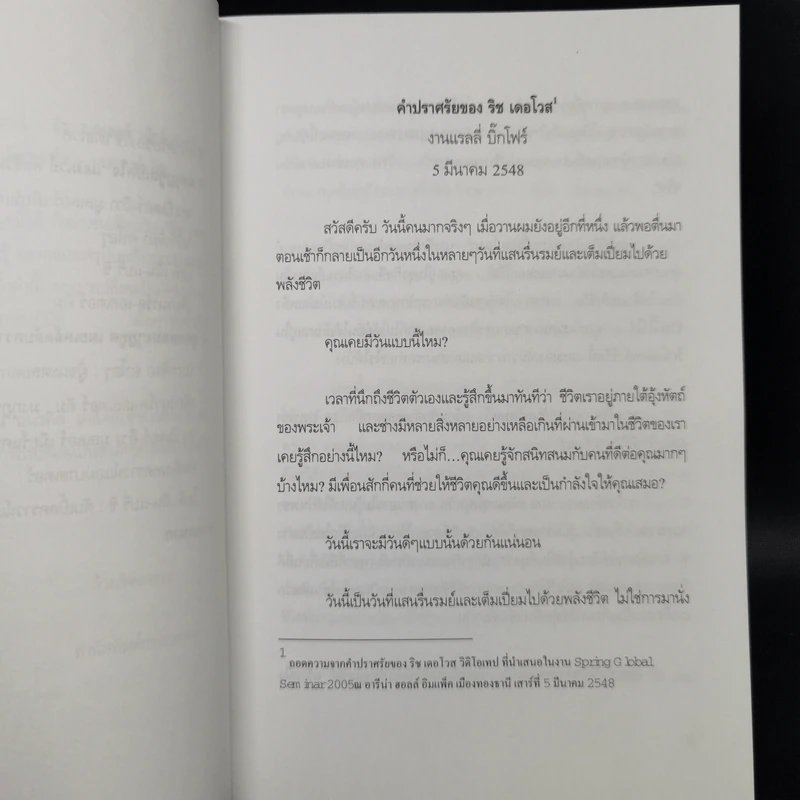 คำปราศรัยของ ริช เดอโวส1
งานแรลลี่ บิ๊กโฟร์
5 มีนาคม 2548
สวัสดีครับ วันนี้คนมากจริงๆ เมื่อวานผมยังอยู่อีกที่หนึ่ง แล้วพอตื่นมา
ตอนเช้าก็กลายเป็นอีกวันหนึ่งในหลายๆวันที่แสนรื่นรมย์และเต็มเปี่ยมไปด้วย
พลังชีวิต
คุณเคยมีวันแบบนี้ไหม?
เวลาที่นึกถึงชีวิตตัวเองและรู้สึกขึ้นมาทันทีว่า ชีวิตเราอยู่ภายใต้อุ้งหัตถ์
ของพระเจ้า และช่างมีหลายสิ่งหลายอย่างเหลือเกินที่ผ่านเข้ามาในชีวิตของเรา
เคยรู้สึกอย่างนี้ไหม? หรือไม่ก็...คุณเคยรู้จักสนิทสนมกับคนที่ดีต่อคุณมากๆ
บ้างไหม? มีเพื่อนสักกี่คนที่ช่วยให้ชีวิตคุณดีขึ้นและเป็นกำลังใจให้คุณเสมอ?
วันนี้เราจะมีวันดีๆแบบนั้นด้วยกันแน่นอน
วันนี้เป็นวันที่แสนรื่นรมย์และเต็มเปี่ยมไปด้วยพลังชีวิต ไม่ใช่การมานั่ง
1 ถอดความจากคำปราศรัยของ ริช เดอโวส วิดีโอเทป ที่นำเสนอในงาน Spring Global
Seminar2005ณ อารีน่า ฮอลล์ อิมแพ็ค เมืองทองธานี เสาร์ที่ 5 มีนาคม 2548